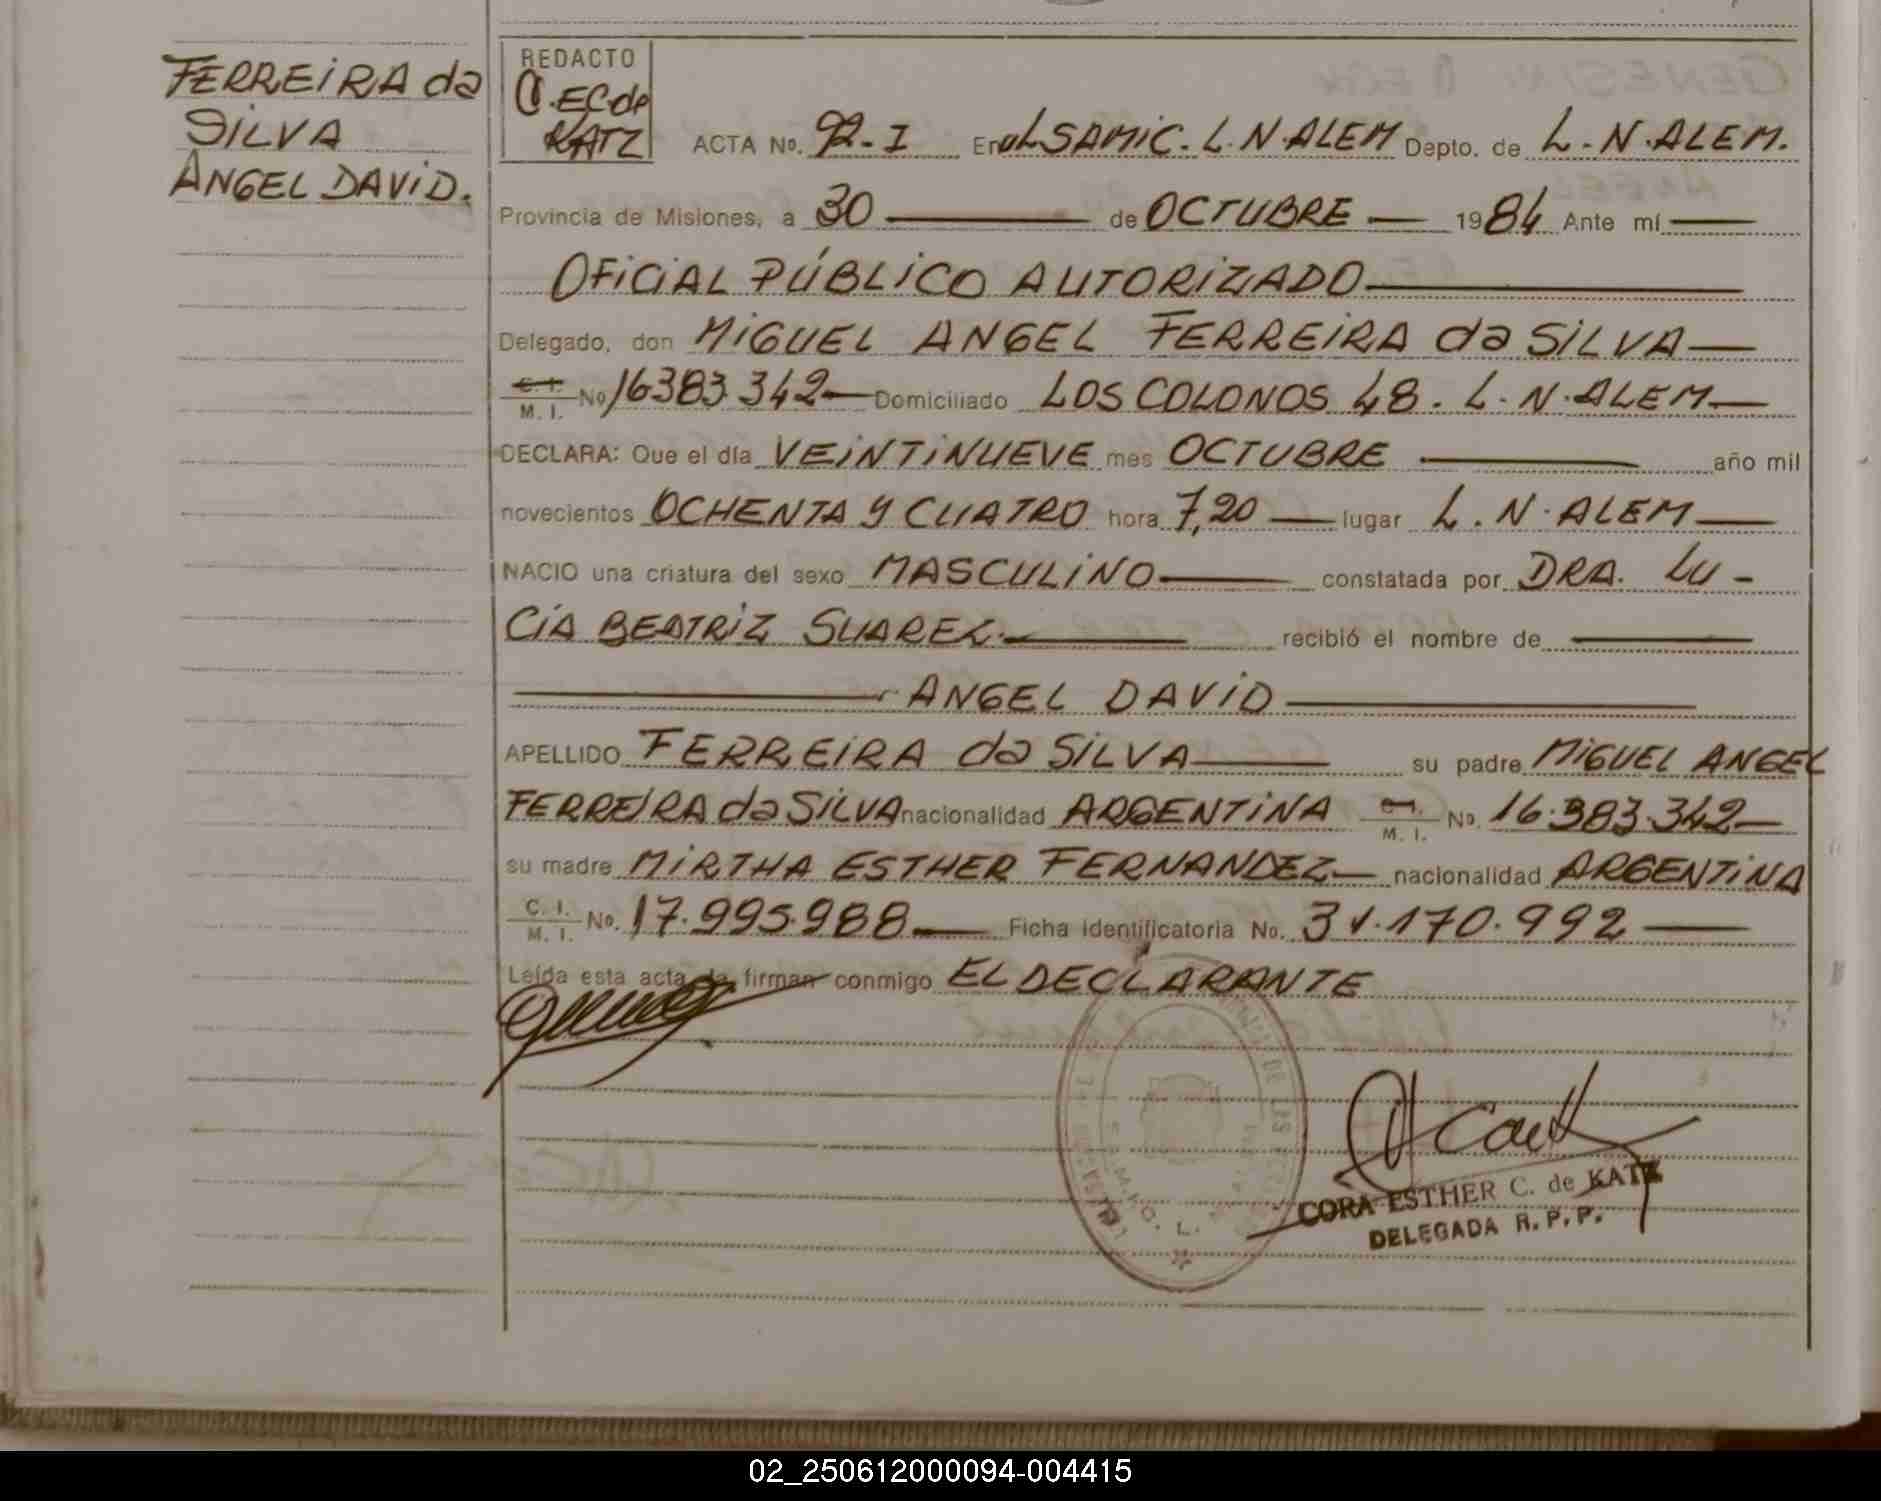 FERREIRA da
SILVA
ANGEL DAVID.
REDACTO
C.EC de
KATZ
ACTA No. 92-I En el SAMIC. L.N.ALEM Depto. de L.N.ALEM.
Provincia de Misiones, a 30 de OCTUBRE 1984 Ante mí
OFICIAL PÚBLICO AUTORIZADO
Delegado, don MIGUEL ANGEL FERREIRA da SILVA
C. I. M. I. No 16383.342 Domiciliado LOS COLONOS 48. L.N.ALEM
DECLARA: Que el día VEINTINUEVE mes OCTUBRE año mil
novecientos OCHENTA Y CUATRO hora 7,20 lugar L.N.ALEM
NACIO una criatura del sexo MASCULINO constatada por DRA. LU-
CÍA BEATRIZ SUAREZ. recibió el nombre de
ANGEL DAVID
APELLIDO FERREIRA da SILVA su padre MIGUEL ANGEL
FERREIRA da SILVA nacionalidad ARGENTINA C. I. M. I. No. 16.383.342
su madre MIRTHA ESTHER FERNANDEZ nacionalidad ARGENTINA
C. I. M. I. No. 17.995.988 Ficha identificatoria No. 31.170.992
Leída esta acta la firman conmigo EL DECLARANTE
CORA ESTHER C. de KATZ
DELEGADA R.P.P.
02_250612000094-004415